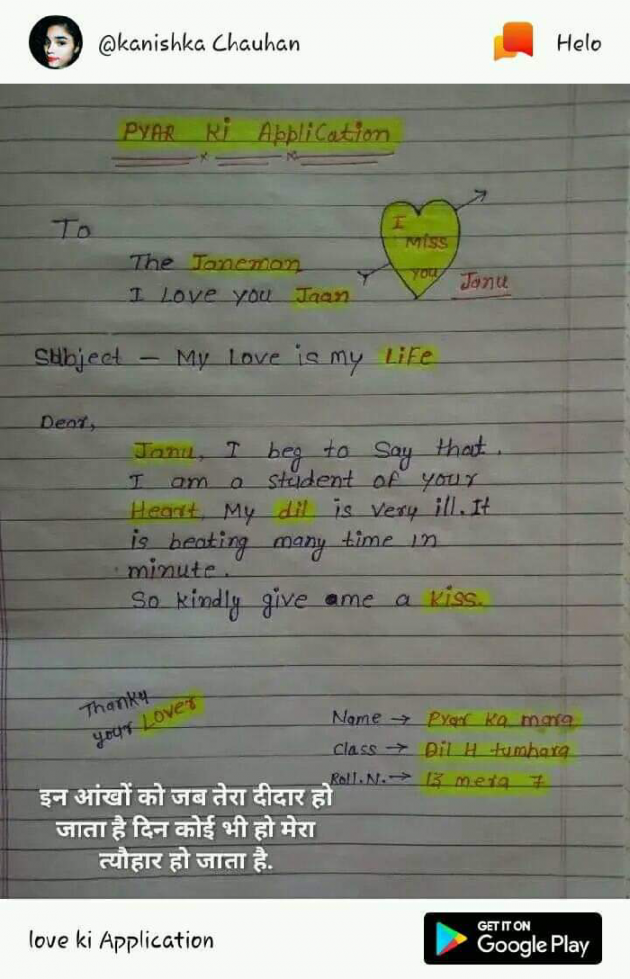 @kanishka Chauhan
Helo
PYAR Ki Application
To
The Janeman
I Love you Jaan
I
Miss
You
Janu
Subject - My Love is my Life
Dear,
Janu, I beg to Say that.
I am a student of your
Heart, My dil is very ill. It
is beating many time in
minute.
So kindly give me a kiss.
Thanky
your Lover
Name → Pyar ka mara
Class → Dil H tumhara
Roll.N. → 13 mera 7
इन आंखों को जब तेरा दीदार हो
जाता है दिन कोई भी हो मेरा
त्यौहार हो जाता है.
love ki Application
GET IT ON
Google Play